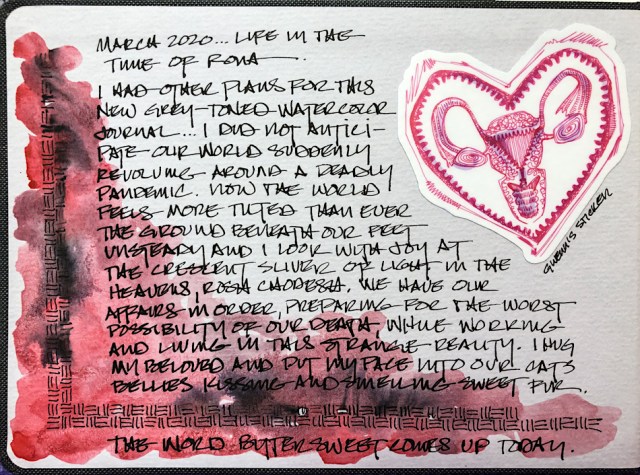 MARCH 2020... LIFE IN THE
TIME OF RONA
I HAD OTHER PLANS FOR THIS
NEW GREY-TONED WATERCOLOR
JOURNAL... I DID NOT ANTICI-
PATE OUR WORLD SUDDENLY
REVOLVING AROUND A DEADLY
PANDEMIC. NOW THE WORLD
FEELS MORE TILTED THAN EVER
THE GROUND BENEATH OUR FEET
UNSTEADY AND I LOOK WITH JOY AT
THE CRESCENT SLIVER OF LIGHT IN THE
HEAVENS, ROSH CHODESH. WE HAVE OUR
AFFAIRS IN ORDER, PREPARING FOR THE WORST
POSSIBILITY OF OUR DEATH WHILE WORKING
AND LIVING IN THIS STRANGE REALITY. I HUG
MY BELOVED AND PUT MY FACE INTO OUR CATS
BELLIES KISSING AND SMELLING SWEET FUR.
THE WORD BITTERSWEET COMES UP TODAY.
STICKER